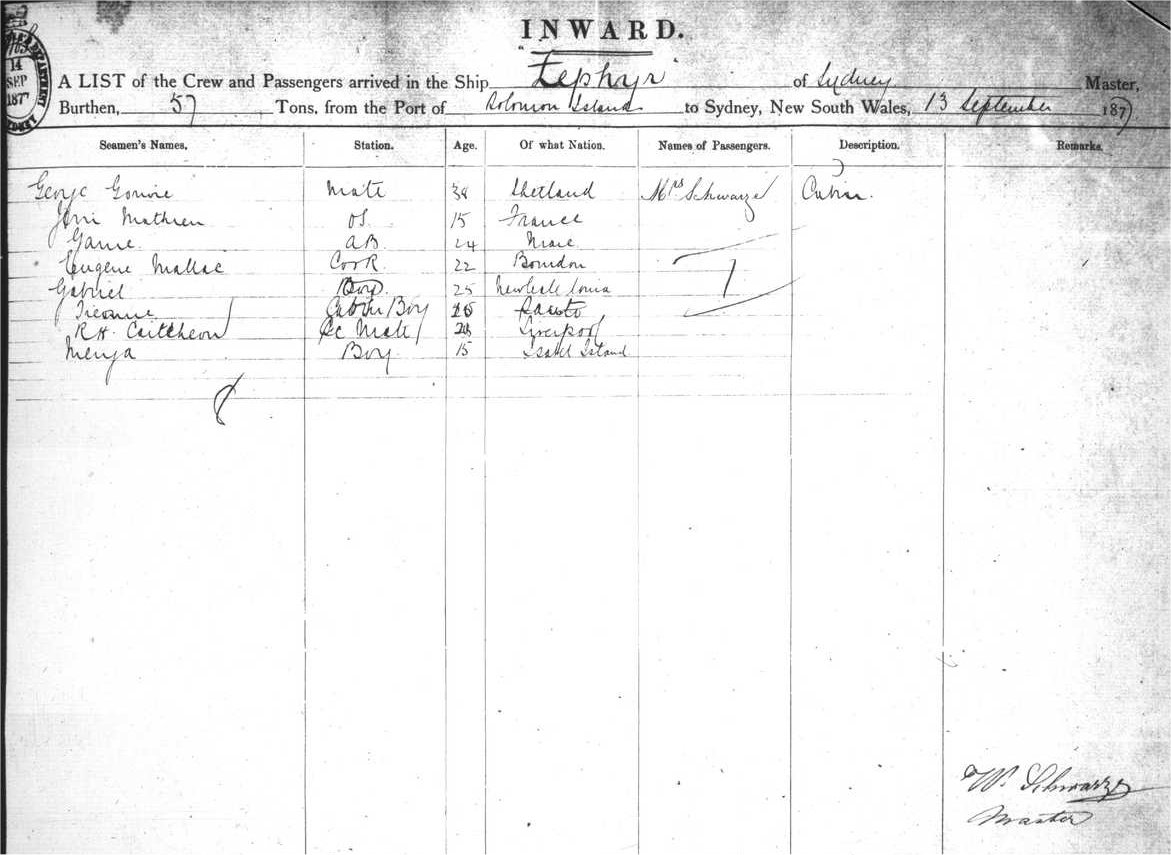 INWARD.
A LIST of the Crew and Passengers arrived in the Ship "Zephyr" of Sydney Master,
Burthen, 57 Tons, from the Port of Solomon Islands to Sydney, New South Wales, 13 September 1877
14
SEP
187
Seamen's Names. Station. Age. Of what Nation. Names of Passengers. Description. Remarks.
George 38 Mate Shetland Mrs Schwarze Cabin
Mathieu OS 15 France
AB 24 Mare
Eugene Mallac Cook 22 Bourbon
Gabriel Boy 25 New Caledonia
Cabin Boy
R.H. Caitcheon Sc Mate Liverpool
Menja Boy 15 Isabel Island
8
1
W. Schwarze
Master